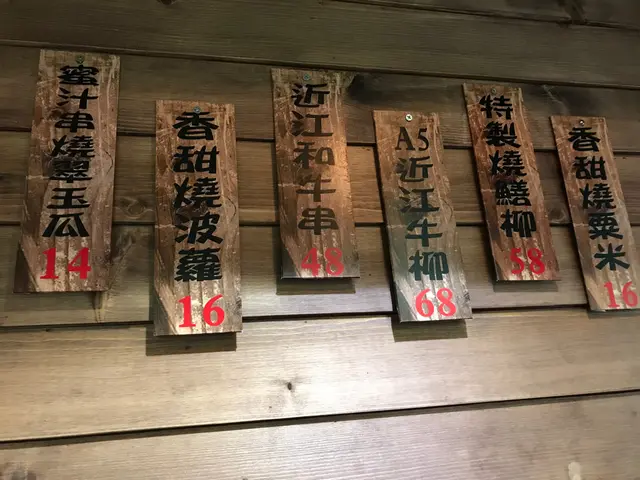 蜜汁串燒翠玉瓜
14
香甜燒波蘿
16
近江和牛串
48
A5近江牛柳
68
特製燒鱔柳
58
香甜燒粟米
16